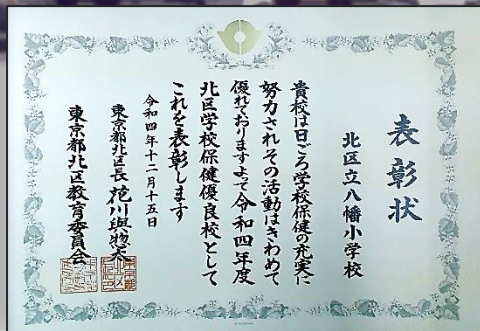 表彰状
北区立八幡小学校
貴校は日ごろ学校保健の充実に
努力されその活動はきわめて
優れておりますよって令和四年度
北区学校保健優良校として
これを表彰します
令和四年十二月十五日
東京都北区長 花川與惣太
東京都北区教育委員会